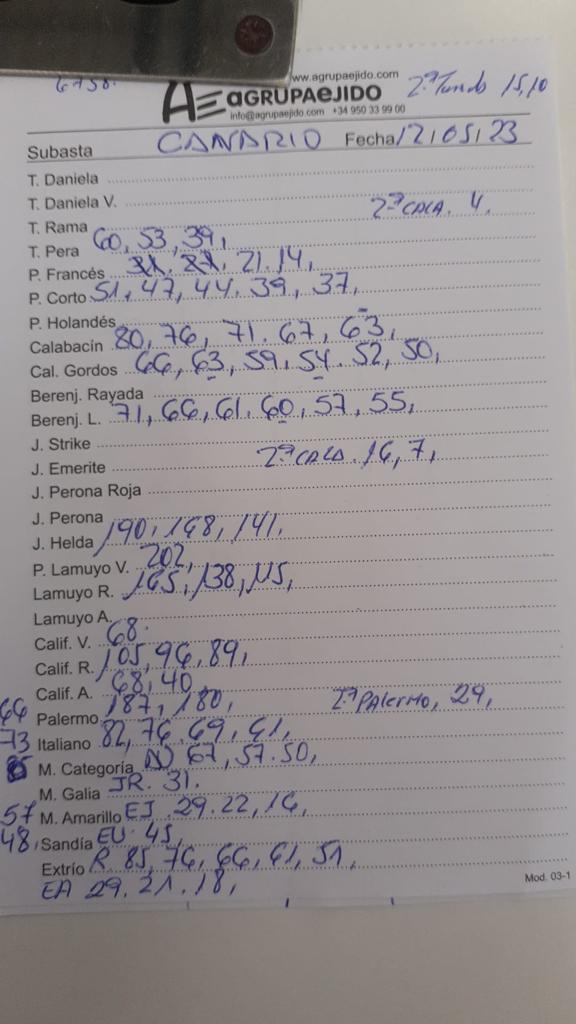 6758.
www.agrupaejido.com
AE aGRUPAeJIDO 2ª Tando 15,10
info@agrupaejido.com +34 950 33 99 00
Subasta CANARIO Fecha 12/05/23
T. Daniela
T. Daniela V.
T. Rama 2ª CALA. 4,
T. Pera 60, 53, 39,
P. Francés 21. 14,
P. Corto 51, 47, 44. 39, 37,
P. Holandés
Calabacín 80, 76, 71. 67, 63,
Cal. Gordos 66, 63, 59, 54. 52, 50,
Berenj. Rayada
Berenj. L. 71, 66, 61. 60, 57, 55,
J. Strike
J. Emerite 2ª CALA. 16, 7,
J. Perona Roja
J. Perona
J. Helda 190, 168, 141,
P. Lamuyo V. 202,
Lamuyo R. 165, 138, 115,
Lamuyo A.
Calif. V. 68.
Calif. R. 105, 96, 89,
Calif. A. 68, 40,
66 Palermo 187, 180, 2ª PALERMO, 29,
73 Italiano 82, 76. 69, 61,
M. Categoría N) 67, 57. 50,
M. Galia JR. 31.
57 M. Amarillo EJ. 29. 22, 16,
48, Sandía EU. 45,
Extrío R. 85, 76, 66, 61, 51,
EA 29. 21. 18,
Mod. 03-1